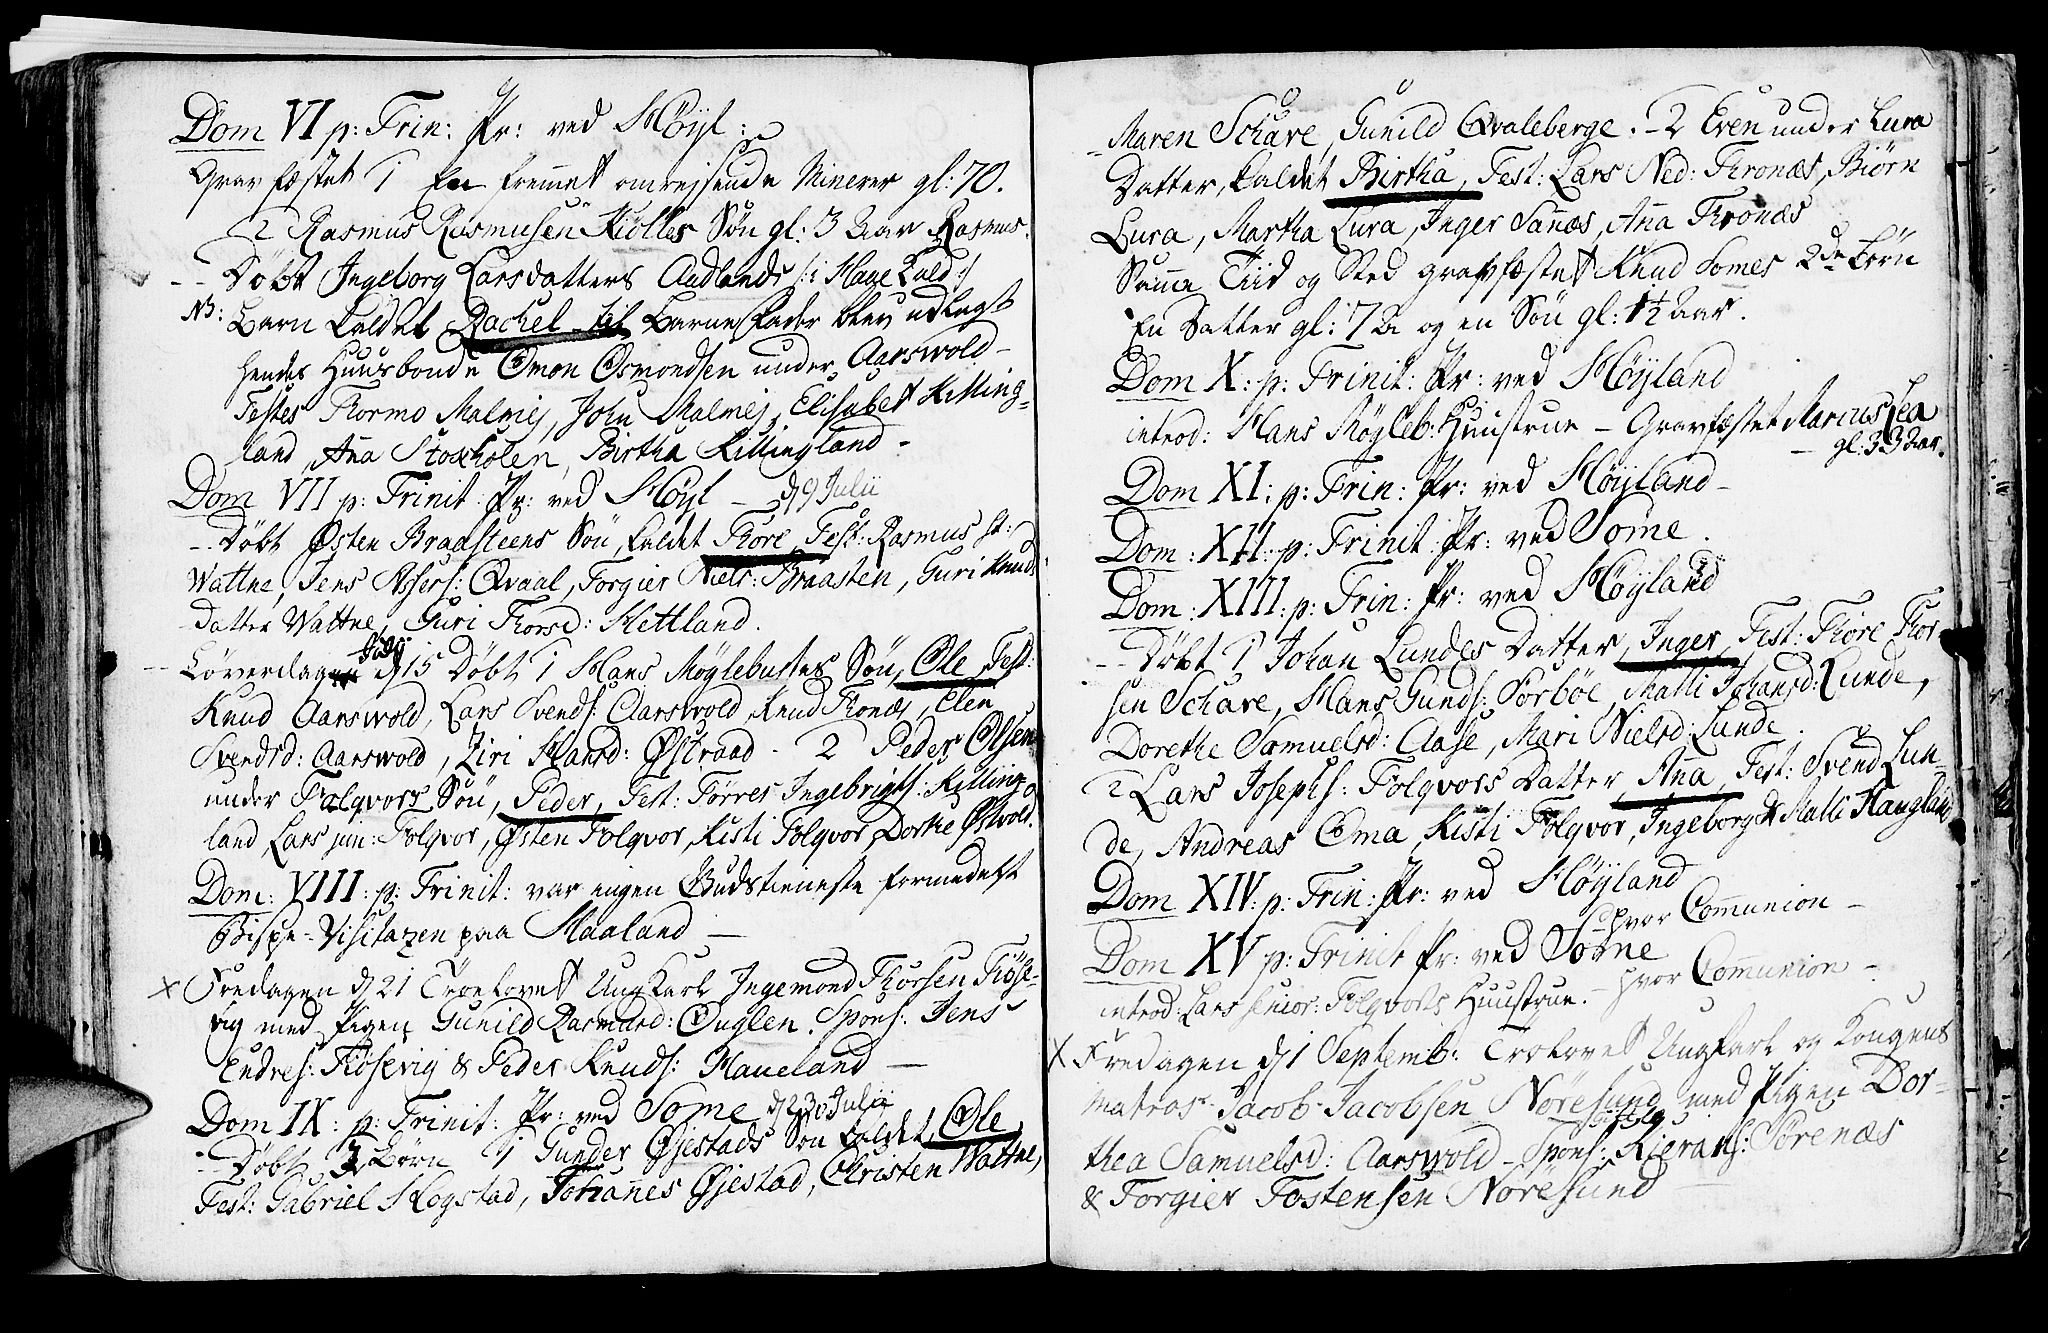 Dom VI p: Trin: Pr: ved Höyl:
Gravfæstet 1 En fremmet omrejsende Minerer gl: 70.
2 Rasmus Rasmusen Kiölles Sön gl: 3 Aar Rasmus.
-- Döbt Ingeborg Larsdatters Audlands /: i Hane kuld :/
NB: Barn kaldet Rachel til Barnefader blev udlagt
hendes Huusbonde Omon Osmondsen under Aarswold -
Festes Thormo Malmej, John Malmej, Elisabet Killing-
land, Ana Stockholen, Birtha Killingland -
Dom VII p: Trinit: Pr: ved Höyl - d 9 Julii
-- Döbt Østen Braasteens Sön, kaldet Thore, Fest: Rasmus
Wattne, Jens Assers: Qvaal, Torgier Niels: Braasten, Guri Knuds
datter Wattne, Guri Thorsd: Hettland.
-- Löverdagen d 15 July Döbt 1 Hans Möglebustes Sön, Ole, Fest:
Knud Aarswold, Lars Svends: Aarswold, Knud Thronæs, Elen
Svendsd: Aarswold, Ziri Hansd: Østraad - 2 Peder Olsen
under Folqvors Sön, Peder, Fest: Törres Ingebrigts: Killing-
land, Lars jun: Folqvor, Østen Folqvor, Kisti Folqvor, Dorthe Østvold.
Dom: VIII: p: Trinit: var ingen Gudstieneste formedelst
Bispe-Visitazen paa Haaland -
x Fredagen d 21 Troelovet Ungkarl Ingemond Thorsen Fiöse-
vig med Pigen Gunild Rasmusd: Øuglen. Spons: Jens
Endres: Fiösevig & Peder Knuds: Haueland -
Dom IX: p: Trinit: Pr: ved Some d 23 Julii
-- Döbt 3 Börn 1 Gunder Øjestads Sön kaldet, Ole,
Fest: Gabriel Skogstad, Johannes Øjestad, Christen Wattne,
Maren Schare, Gunild Qvaleberge. - 2 Even under Lura
Datter, kaldet Birtha, Fest: Lars Ned: Thronæs, Biörn
Lura, Martha Lura, Inger Sanæs, Ana Thronæs
Samme Tiid og Sted gravfæstet Knud Somes 2de Börn
En Datter gl: 7 A og en Sön gl: 1½ Aar.
Dom X: p: Trinit: Pr: ved Höyland
introd: Hans Mögleb: Huustrue - Gravfæstet Marcus Lea
gl: 33 Aar.
Dom XI: p: Trin: Pr: ved Höyland -
Dom: XII: p: Trinit: Pr: ved Some.
Dom: XIII: p: Trin: Pr: ved Höyland
-- Döbt 1 Johan Lundes Datter, Inger, Fest: Thore Thor-
sen Schare, Hans Gunds: Sorböe, Malli Johansd: Lunde,
Dorethe Samuelsd: Aase, Mari Nielsd: Lunde.
2 Lars Josephs: Folqvors Datter, Ana, Fest: Svend Lun-
de, Andreas Oma, Kisti Folqvor, Ingeborg & Malli Haugland
Dom XIV: p: Trin: Pr: ved Höyland
hvor Communion -
Dom XV p: Trinit Pr: ved Some
introd: Lars senior: Folqvors Huustrue. - hvor Communion -
x Fredagen d 1 Septemb: Trolovet Ungkarl og Kongens
Matros Jacob Jacobsen Nöresund med Pigen Dor-
thea Samuelsd: Aarswold - Spons: Kierans: Sörenæs
& Torgier Tostensen Nöresund